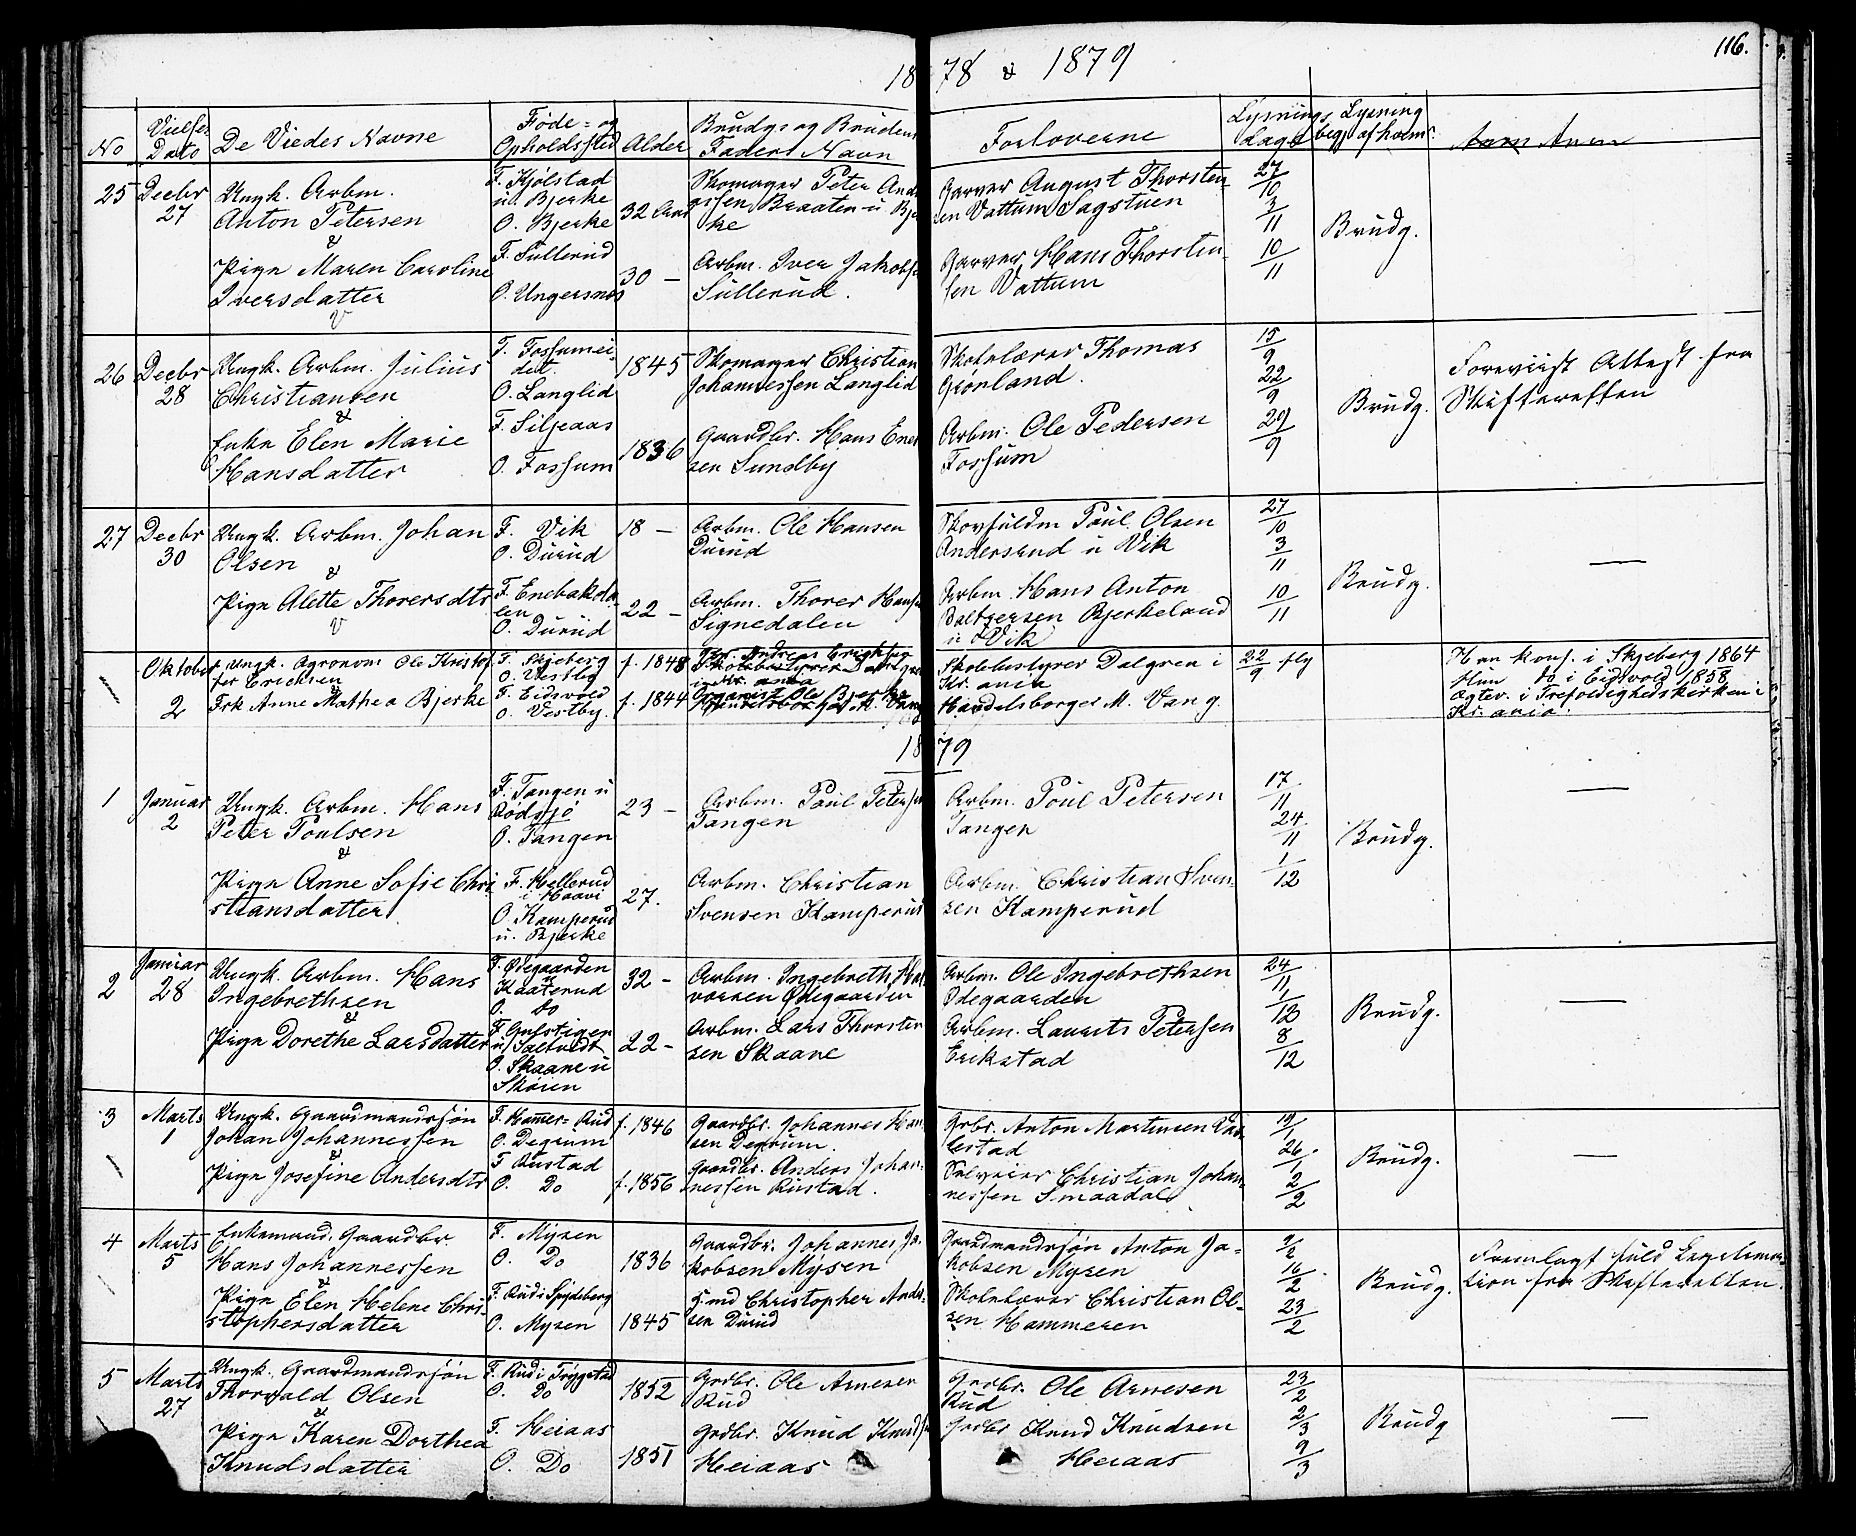 116.
1878 & 1879
No
Vielses Dato
De Viedes Navne
Føde= og Opholdssted
Alder
Brudgs og Brudens Faders Navn
Forloverne
Lysnings Dage
Lysning begj. af hvem
Anm
25
Decbr 27
Ungk. Arbm.
Anton Petersen
&
Pige Maren Caroline
Iversdatter
F. Kjølstad
u. Bjerke
O. Bjerke
F. Sullerud
O. Ungersnes
32 Aar
30 —
Skomager Peter Andersen Braaten u Bjerke
Arbm. Iver Jakobsen
Sullerud.
Garver August Thorsten-
sen Vattum Sagstuen
Garver Hans Thorsten-
sen Vattum
27/10
3/11
10/11
Brudg.
26
Decbr 28
Ungk. Arbm. Julius
Christiansen
&
Enke Elen Marie
Hansdatter
F. Fossumei-
det.
O. Langlid
F. Siljeaas
O. Fossum
1845
1836
Skomager Christian
Johannessen Langlid
Gaardbr. Hans Ener
sen Sundby
Skolelærer Thomas
Grønland.
Arbm. Ole Pedersen
Fossum
15/9
22/9
29/9
Brudg.
Foreviist Attest fra
Skifteretten
27
Decbr 30
Ungk. Arbm. Johan
Olsen
&
Pige Alette Thorersdtr
F. Vik
O. Durud
F. Enebakda-
len
O. Durud
18 —
22 —
Arbm. Ole Hansen
Durud
Arbm. Thorer Hansen
Signedalen
Skovfuldm Poul Olsen
Andersrud u Vik
Arbm. Hans Anton
Baltzersen Bjerkeland
u Vik
27/10
3/11
10/11
Brudg.
—
Oktober 2
Ungk. Agronom Ole Kristof-
fer Erichsen &
Frk Anne Mathea Bjerke
F. Skjeberg
O. Vestby
F. Eidsvold
O. Vestby.
f. 1848
f. 1844
Gbr. Andreas Erichsen
Organist Ole Bjerke
Skolebestyrer Dalgren i
Kr.ania
Handelsborger M. Vang.
22/9
Han konf. i Skjeberg 1864
Hun do i Eidsvold 1858
Ægtev. i Trefoldighedskirken i
Kr.ania.
1879
1
Januar 2
Ungk. Arbm. Hans
Peter Poulsen
&
Pige Anne Sofie Chri
stiansdatter
F. Tangen u
Rødsjø
O. Tangen
F. Hellerud
i Haavi
O. Kamperud
u. Bjerke
23 —
27.
Arbm. Poul Petersen
Tangen
Arbm. Christian
Svensen Kamperud
Arbm. Poul Petersen
Tangen
Arbm. Christian Sven-
sen Kamperud
17/11
24/11
1/12
Brudg.
—
2
Januar 28
Ungk. Arbm. Hans
Ingebrethsen
&
Pige Dorethe Larsdatter
F. Ødegaarden
u Kaaterud
O. do
u/ Saltvedt
O. Skaane u
Skoien
32 —
22 —
Arbm. Ingebreth Hal
vorsen Ødegaarden
Arbm. Lars Thorsten
sen Skaane
Arbm. Ole Ingebrethsen
Ødegaarden
Arbm. Laurits Petersen
Erikstad
24/11
1/12
8/12
Brudg.
—
3
Marts 1
Ungk. Gaardmandssøn
Johan Johannessen
&
Pige Josefine Andersdtr
F. Hammer= Rud
O. Degrum
F Rustad
O. Do
f. 1846
f. 1856
Gaardbr. Johannes Han-
sen Degrum
Gaardbr. Anders Johan-
nessen Rustad.
Grbr. Anton Martinsen
Selveier Christian Johan-
nessen Smaadal
19/1
26/1
2/2
Brudg.
—
4
Marts 5
Enkemand. Gaardbr.
Hans Johannessen
&
Pige Elen Helene Chri-
stophersdatter
F. Mysen
O. Do
F. Rud i Spydeberg
O. Mysen
1836
1845
Gaardbr. Johannes Ja-
kobsen Mysen
Hmd Christopher Ander-
sen Durud
Gaardmandssøn Anton Ja-
kobsen Mysen
Skolelærer Christian Ol-
sen Hammeren
9/2
16/2
23/2
Brudg.
Fremlagt fuld Legitima-
tion fra Skifteretten.
5
Marts 27
Ungk. Gaardmandssøn
Thorvald Olsen
&
Pige Karen Dorthea
Knudsdatter
F. Rud i Trygstad
O. Do
F. Heiaas
O. Do
1852
1851
Grdbr. Ole Arnesen
Rud
Grdbr. Knud Knudsen
Heiaas
Grdbr. Ole Arnesen
Rud
Grdbr Knud Knudsen
Heiaas
23/2
2/3
9/3
Brudg
—